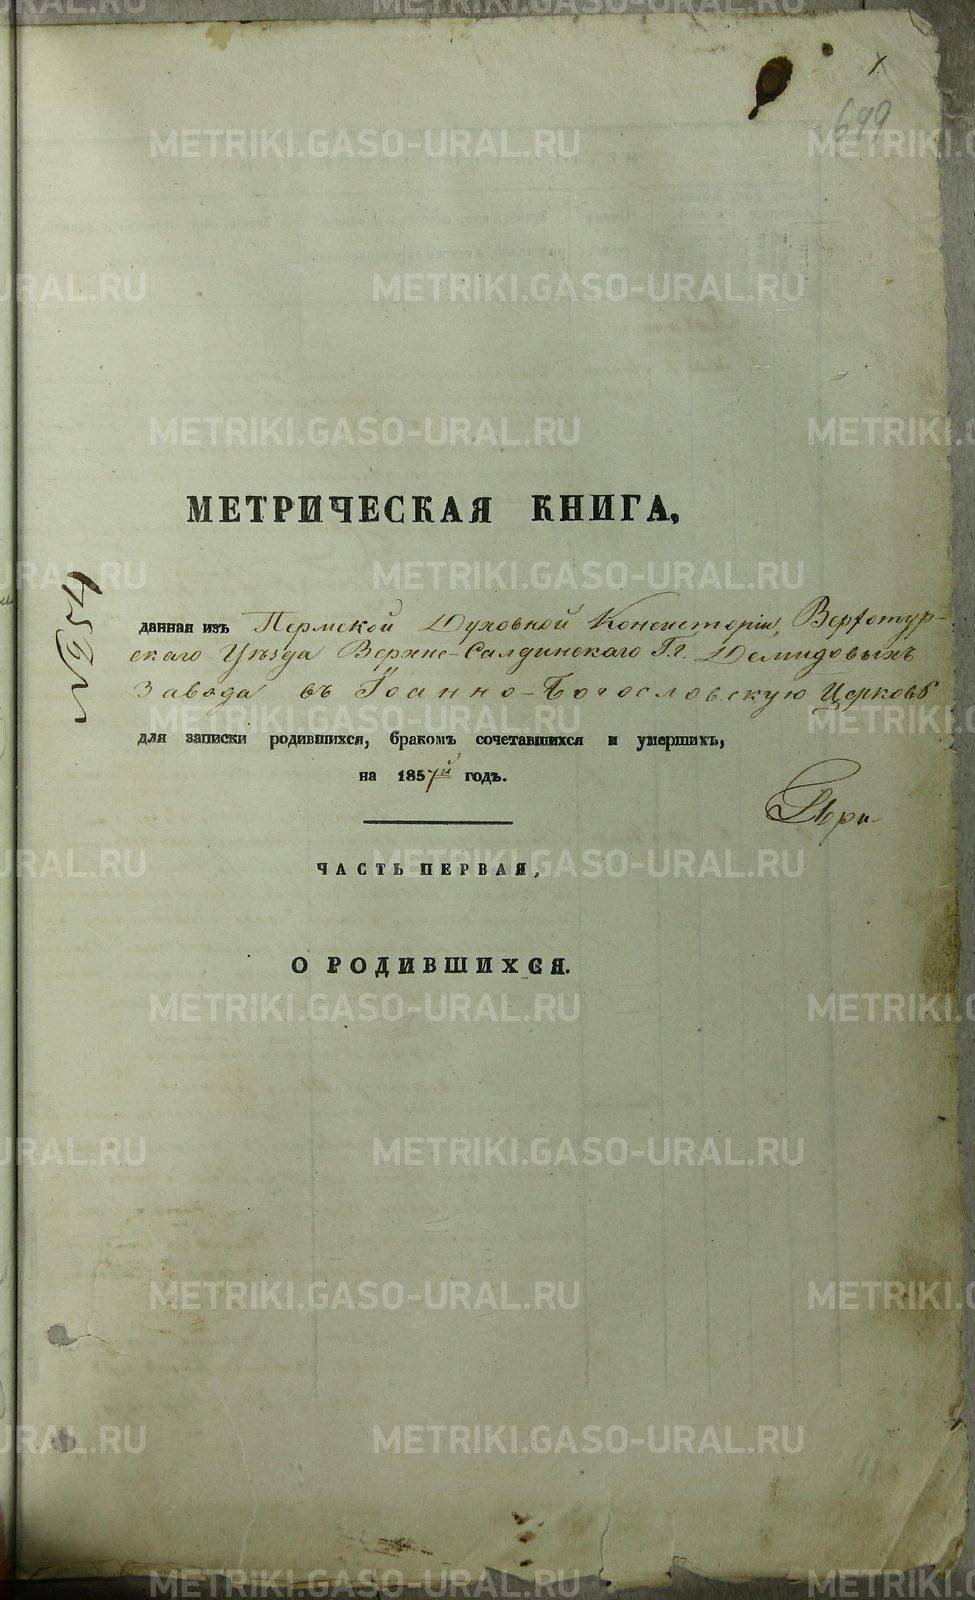 699
МЕТРИЧЕСКАЯ КНИГА,
№ 254
данная изъ Пермской Духовной Консисторіи, Верхотур-
скаго Уѣзда Верхне-Салдинскаго Г.г. Демидовыхъ
Завода въ Іоанно-Богословскую Церковь
для записки родившихся, бракомъ сочетавшихся и умершихъ,
на 1857й годъ.
ЧАСТЬ ПЕРВАЯ,
О РОДИВШИХСЯ.
METRIKI.GASO-URAL.RU